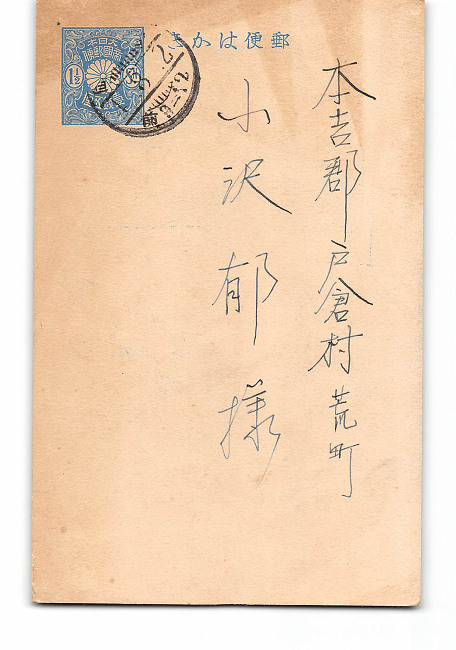 郵便はかき
本吉郡戸倉村荒町
小沢郁様
1½